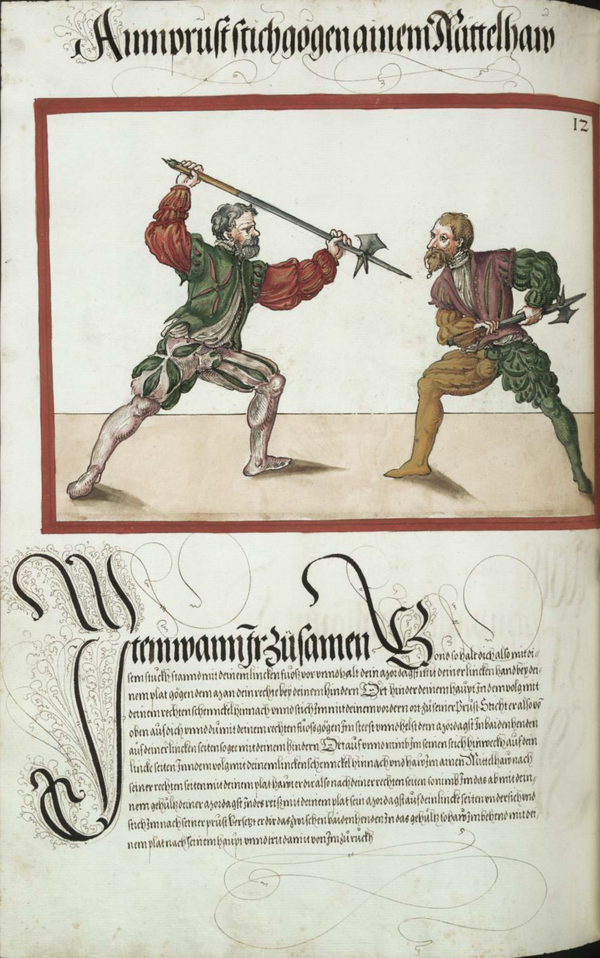 Ainn prust stich gögen ainem Mittelhaw
12
Item wann Jr zů samen Gond so halt dich also mit di-
sem stuckh stannd mit deinem lincken fuoß vor vnnd halt dein axordagst mit deiner lincken hand bey dei-
nem plat gögen dem man dein rechte bey deinem hindern Ort hinder deinem haupt In dem volg mit
deinem rechten schennckel hinnach vnnd stich Im mit deinem vordern ort zů seiner Prust Sticht er also vō
oben auf dich vnnd du mit deinem rechten fuoß gögen Im steest vnnd helst dein axordagst In baiden henden
auf deiner lincken seiten so get mit deinem hindern Ort auf vnnd nimb Im seinen stich hinweckh auf dein
lincke seiten In dem volg mit deinem lincken schennckel hinnach vnd haw Im ainen Mittelhaw nach
seiner rechten seiten mit deinem plat hawt er dir also nach deiner rechten seiten so nimb Im das ab mit dein-
nem gehültz deiner axordagst Indes reiß mit deinem plat sein axordagst auf dein lincke seiten vndersich vnd
stich Im nach seiner prust Versetzt er dir das zwischen baiden henden In das gehültz so haw Im behend mit dei-
nem plat nach seinem haupt vnnd trit damit von Im zůruckh